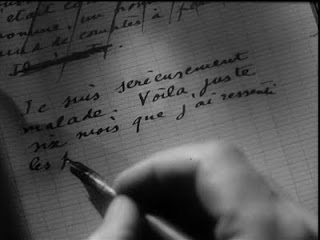 était
un
de comptes à
Je suis sérieusement
malade. Voilà, juste
six mois que j'ai ressenti
les p